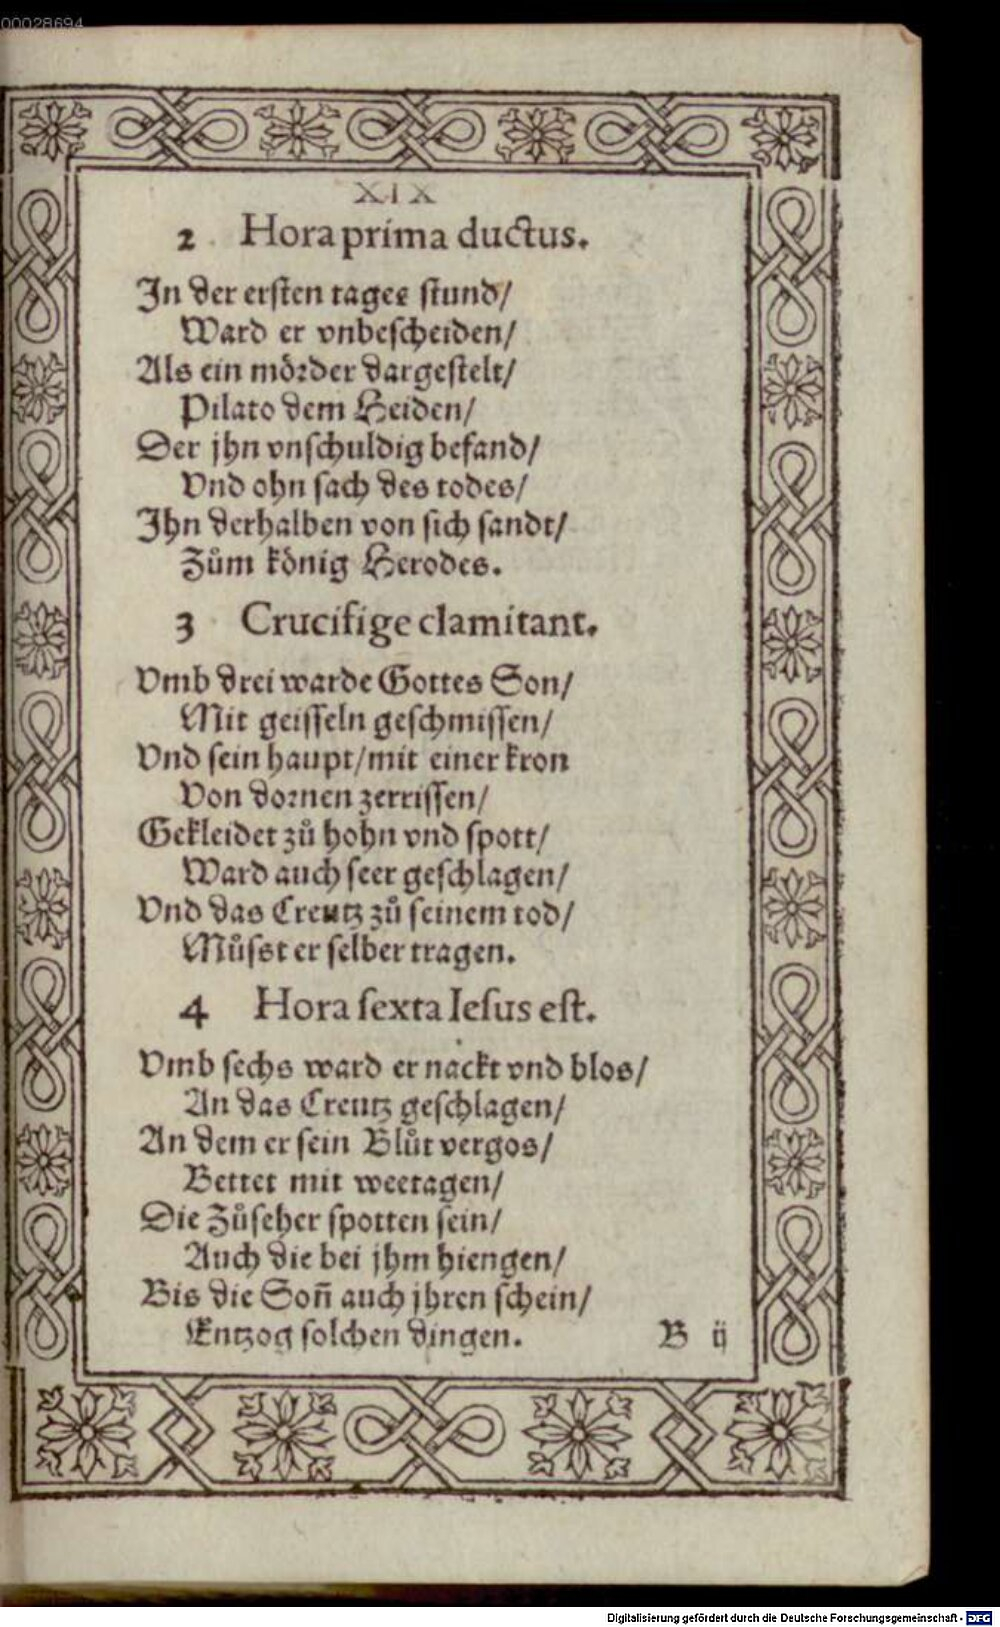 00028694
XIX
2 Hora prima ductus.
In der ersten tages stund/
Ward er vnbescheiden/
Als ein mörder dargestelt/
Pilato dem Heiden/
Der jhn vnschuldig befand/
Vnd ohn sach des todes/
Ihn derhalben von sich sandt/
Zům könig Herodes.
3 Crucifige clamitant.
Vmb drei warde Gottes Son/
Mit geisseln geschmissen/
Vnd sein haupt/mit einer kron
Von dornen zerrissen/
Gekleidet zů hohn vnd spott/
Ward auch seer geschlagen/
Vnd das Creutz zů seinem tod/
Můsst er selber tragen.
4 Hora sexta Iesus est.
Vmb sechs ward er nackt vnd blos/
An das Creutz geschlagen/
An dem er sein Blůt vergos/
Bettet mit weetagen/
Die Zůseher spotten sein/
Auch die bei jhm hiengen/
Bis die Son̄ auch jhren schein/
Entzog solchen dingen. B ij
Digitalisierung gefördert durch die Deutsche Forschungsgemeinschaft - DFG